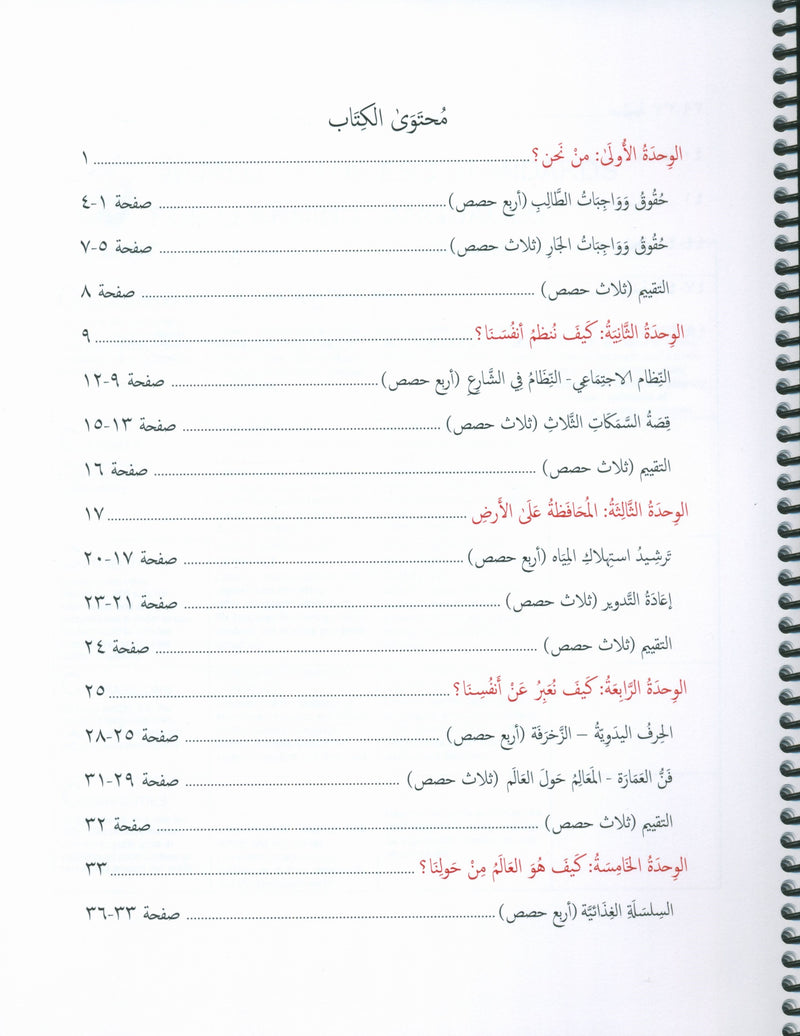 مُحتَوَىٰ الكِتَاب
الوِحدَةُ الأُولَىٰ: مَنْ نَحن؟ ........ ١
حُقُوقُ وَوَاجِبَاتُ الطَّالِبِ (أربع حصص) ........ صفحة ١-٤
حُقُوقُ وَوَاجِبَاتُ الجَارِ (ثلاث حصص) ........ صفحة ٥-٧
التقييم (ثلاث حصص) ........ صفحة ٨
الوِحدَةُ الثَّانِيَةُ: كَيفَ نُنظمُ أنفُسَنَا؟ ........ ٩
النِّظام الاجتِمَاعي- النِّظَامُ فِي الشَّارِعِ (أربع حصص) ........ صفحة ٩-١٢
قِصَةُ السَّمَكَاتِ الثَّلاثِ (ثلاث حصص) ........ صفحة ١٣-١٥
التقييم (ثلاث حصص) ........ صفحة ١٦
الوِحدَةُ الثَّالِثَةُ: المُحَافَظَةُ عَلَىٰ الأَرضِ ........ ١٧
تَرشِيدُ استِهلاكِ المِيَاه (أربع حصص) ........ صفحة ١٧-٢٠
إعَادَةُ التَّدوِير (ثلاث حصص) ........ صفحة ٢١-٢٣
التقييم (ثلاث حصص) ........ صفحة ٢٤
الوِحدَةُ الرَّابِعَةُ: كَيفَ نُعَبِرُ عَنْ أَنفُسِنَا؟ ........ ٢٥
الحِرفُ اليدَوِيَّةُ – الزَّخرَفَة (أربع حصص) ........ صفحة ٢٥-٢٨
فَنُّ العَمَارَة - المَعَالِمُ حَولَ العَالَم (ثلاث حصص) ........ صفحة ٢٩-٣١
التقييم (ثلاث حصص) ........ صفحة ٣٢
الوِحدَةُ الخَامِسَةُ: كَيفَ هُوَ العَالَمُ مِنْ حَولِنَا؟ ........ ٣٣
السِلسَلَةِ الغِذَائيَّة (أربع حصص) ........ صفحة ٣٣-٣٦